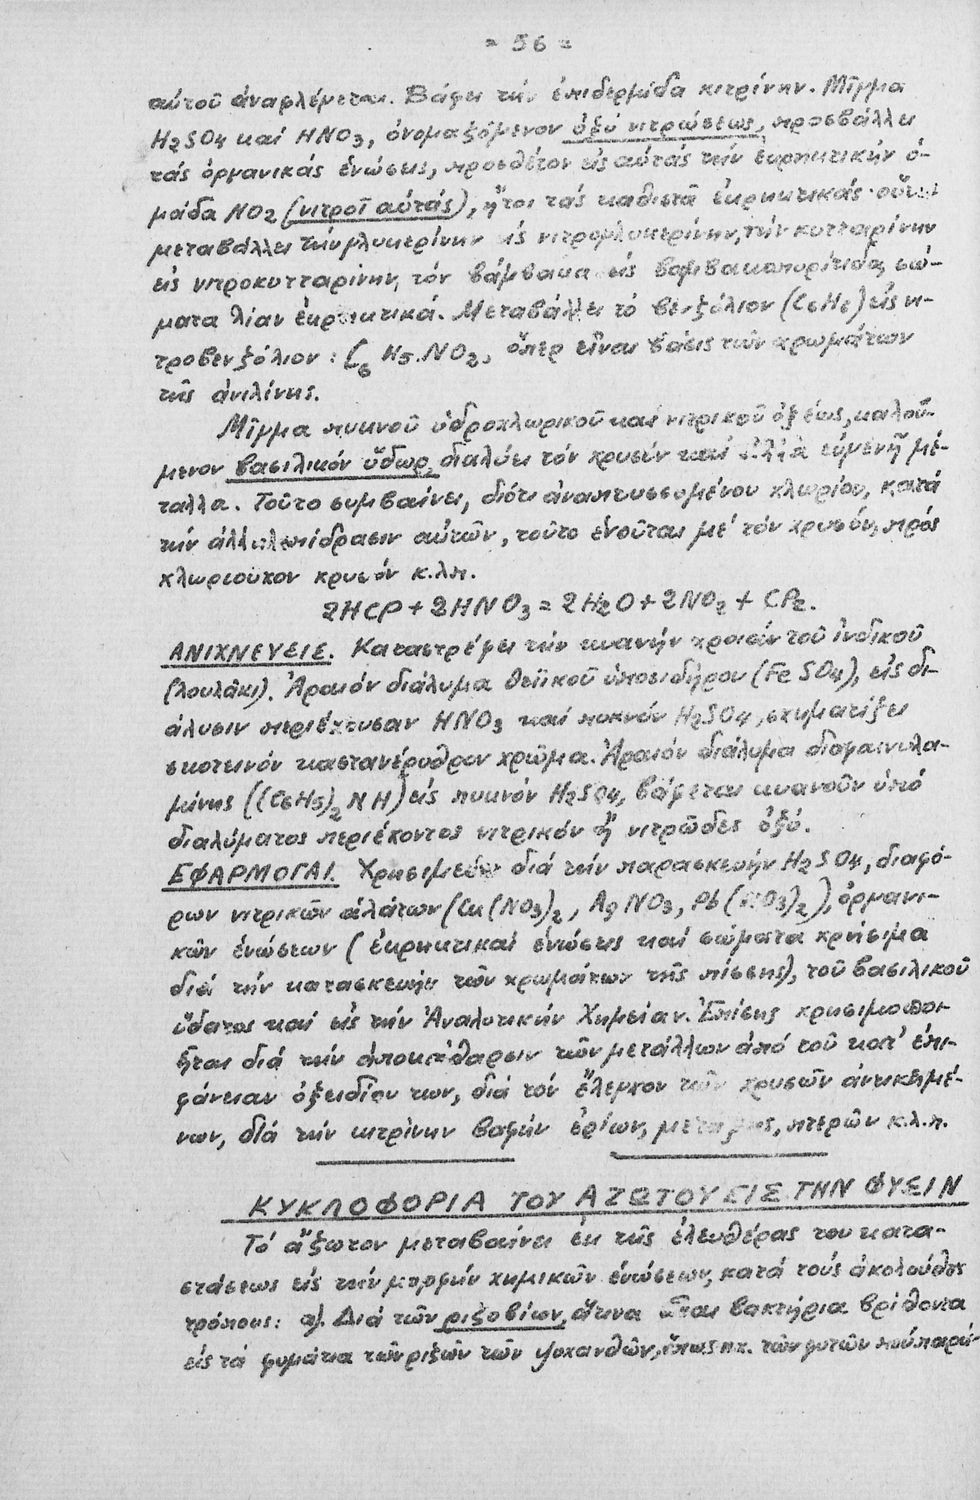 = 56 =
αὐτοῦ ἀναφλέγεται. Βάφει τήν ἐπιδερμίδα κιτρίνην. Μῖγμα
H₂SO₄ καί HNO₃, ὀνομαζόμενον ὀξύ νιτρώσεως, προσβάλλει
τάς ὀργανικάς ἑνώσεις, προσθέτον εἰς αὐτάς τήν ἐκρηκτικήν ὁ-
μάδα NO₂ (νιτροῖ αὐτάς), ἤτοι τάς καθιστᾶ ἐκρηκτικάς
μεταβάλλει τήν γλυκερίνην εἰς νιτρογλυκερίνην, τήν κυτταρίνην
εἰς νιτροκυτταρίνην, τόν βάμβακα εἰς βαμβακοπυρίτιδα, σώ-
ματα λίαν ἐκρηκτικά. Μεταβάλλει τό βενζόλιον (C₆H₆) εἰς νι-
τροβενζόλιον: C₆H₅.NO₂, ὅπερ εἶναι βάσις τῶν χρωμάτων
τῆς ἀνιλίνης.
Μῖγμα πυκνοῦ ὑδροχλωρικοῦ καί νιτρικοῦ ὀξέως, καλού-
μενον βασιλικόν ὕδωρ, διαλύει τόν χρυσόν καί ἄλλα εὐγενῆ μέ-
ταλλα. Τοῦτο συμβαίνει, διότι ἀναπτυσσομένου χλωρίου, κατά
τήν ἀλληλεπίδρασιν αὐτῶν, τοῦτο ἑνοῦται μέ τόν χρυσόν, πρός
χλωριοῦχον χρυσόν κ.λπ.
2HCl + 2HNO₃ = 2H₂O + 2NO₂ + Cl₂.
ΑΝΙΧΝΕΥΣΙΣ. Καταστρέφει τήν κυανήν χροιάν τοῦ ἰνδικοῦ
(λουλάκι). Ἀραιόν διάλυμα θειϊκοῦ ὑποσιδήρου (FeSO₄), εἰς δι-
άλυσιν περιέχουσαν HNO₃ καί πυκνόν H₂SO₄, σχηματίζει
σκοτεινόν καστανέρυθρον χρῶμα. Ἀραιόν διάλυμα διφαινυλα-
μίνης ((C₆H₅)₂NH) εἰς πυκνόν H₂SO₄, βάφεται κυανοῦν ὑπό
διαλύματος περιέχοντος νιτρικόν ἤ νιτρῶδες ὀξύ.
ΕΦΑΡΜΟΓΑΙ. Χρησιμεύει διά τήν παρασκευήν H₂SO₄, διαφό-
ρων νιτρικῶν ἁλάτων (Cu(NO₃)₂, AgNO₃, Pb(NO₃)₂), ὀργανι-
κῶν ἑνώσεων (ἐκρηκτικαί ἑνώσεις καί σώματα χρήσιμα
διά τήν κατασκευήν τῶν χρωμάτων τῆς πίσσης), τοῦ βασιλικοῦ
ὕδατος καί εἰς τήν Ἀναλυτικήν Χημείαν. Ἐπίσης χρησιμοποι-
ῆται διά τήν ἀποκάθαρσιν τῶν μετάλλων ἀπό τοῦ κατ' ἐπι-
φάνειαν ὀξειδίου των, διά τόν ἔλεγχον τῶν χρυσῶν ἀντικειμέ-
νων, διά τήν κιτρίνην βαφήν ἐρίων, μετάξης, πτερῶν κ.λ.π.
ΚΥΚΛΟΦΟΡΙΑ ΤΟΥ ΑΖΩΤΟΥ ΕΙΣ ΤΗΝ ΦΥΣΙΝ
Τό ἄζωτον μεταβαίνει ἐκ τῆς ἐλευθέρας του κατα-
στάσεως εἰς τήν μορφήν χημικῶν ἑνώσεων, κατά τούς ἀκολούθους
τρόπους: α). Διά τῶν ριζοβίων, ἅτινα εἶναι βακτήρια βρίθοντα
εἰς τά φυμάτια τῶν ριζῶν τῶν ψυχανθῶν, ὅπως πχ. τῶν φυτῶν πού παρά-